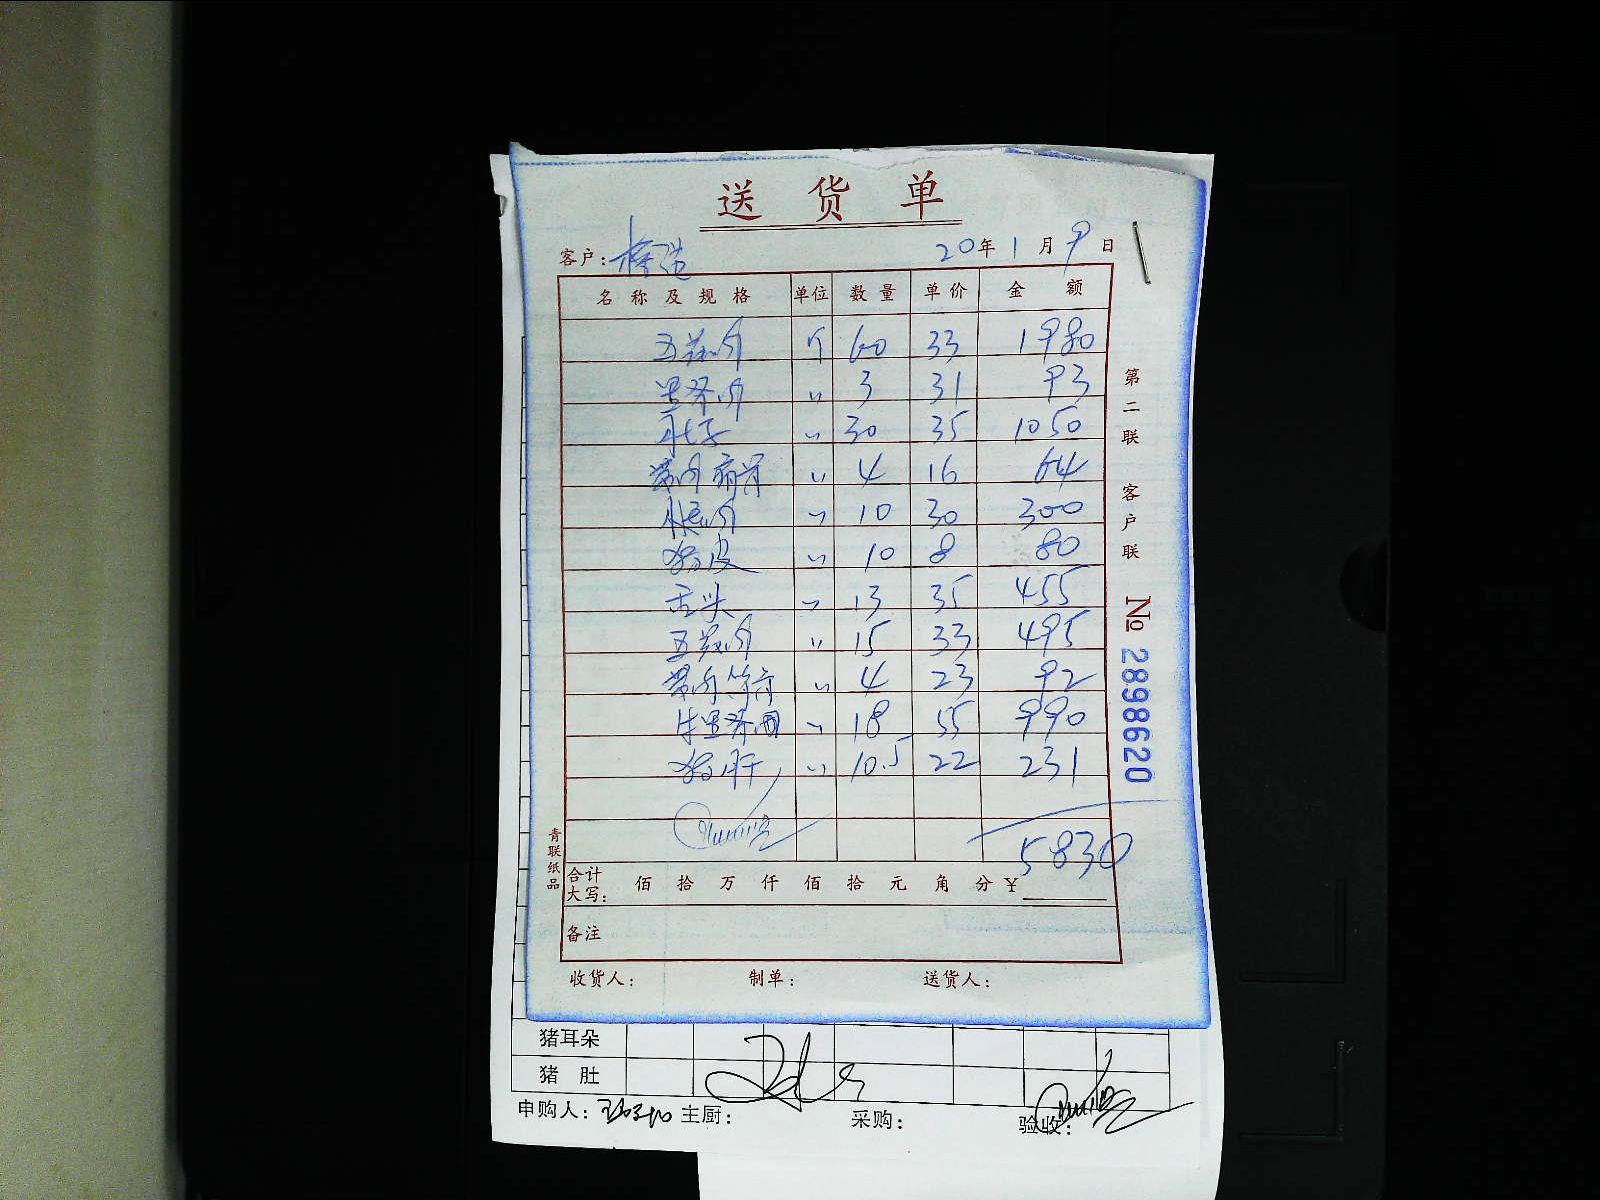 送货单
客户: 20年1月9日
名称及规格 单位 数量 单价 金额
五花肉 个 60 33 1980
里脊肉 〃 3 31 93
肚子 〃 30 35 1050
带肉扇骨 〃 4 16 64
腿肉 〃 10 30 300
猪皮 〃 10 8 80
舌头 〃 13 35 455
五花肉 〃 15 33 495
带肉筒骨 〃 4 23 92
牛里脊肉 〃 18 55 990
猪肝 〃 10.5 22 231
5830
合计大写: 佰 拾 万 仟 佰 拾 元 角 分 ¥
备注
收货人: 制单: 送货人:
第二联 客户联 No 2898620
青联纸品
猪耳朵
猪肚
申购人: 主厨: 采购: 验收: